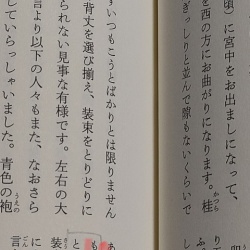 頃）に宮中をお出ましになって、
を西の方にお曲がりになります。桂
かつら
ぎっしりと並んで隙もないくらいで
いつもこうとばかりとは限りません
背丈を選び揃え、装束をとりどりに
られない見事な有様です。左右の大
言より以下の人々もまた、なおさら
していらっしゃいました。青色の袍
うえの
あ
も
と
装
言